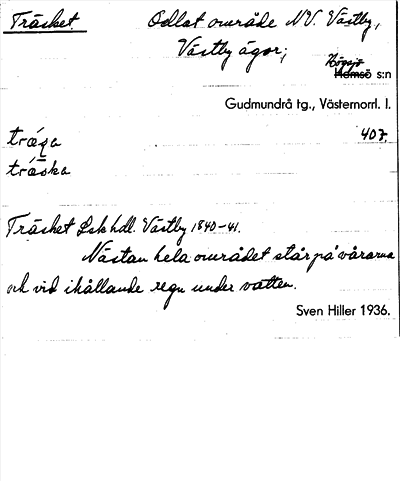 Träsket. Odlat område NV. Västby,
Västby ägor;
Högsjö
Hemsö s:n
Gudmundrå tg., Västernorrl. l.
407.
träska
Träsket Lskhdl. Västby 1840-41.
Nästan hela området står på vårarna
och vid ihållande regn under vatten.
Sven Hiller 1936.